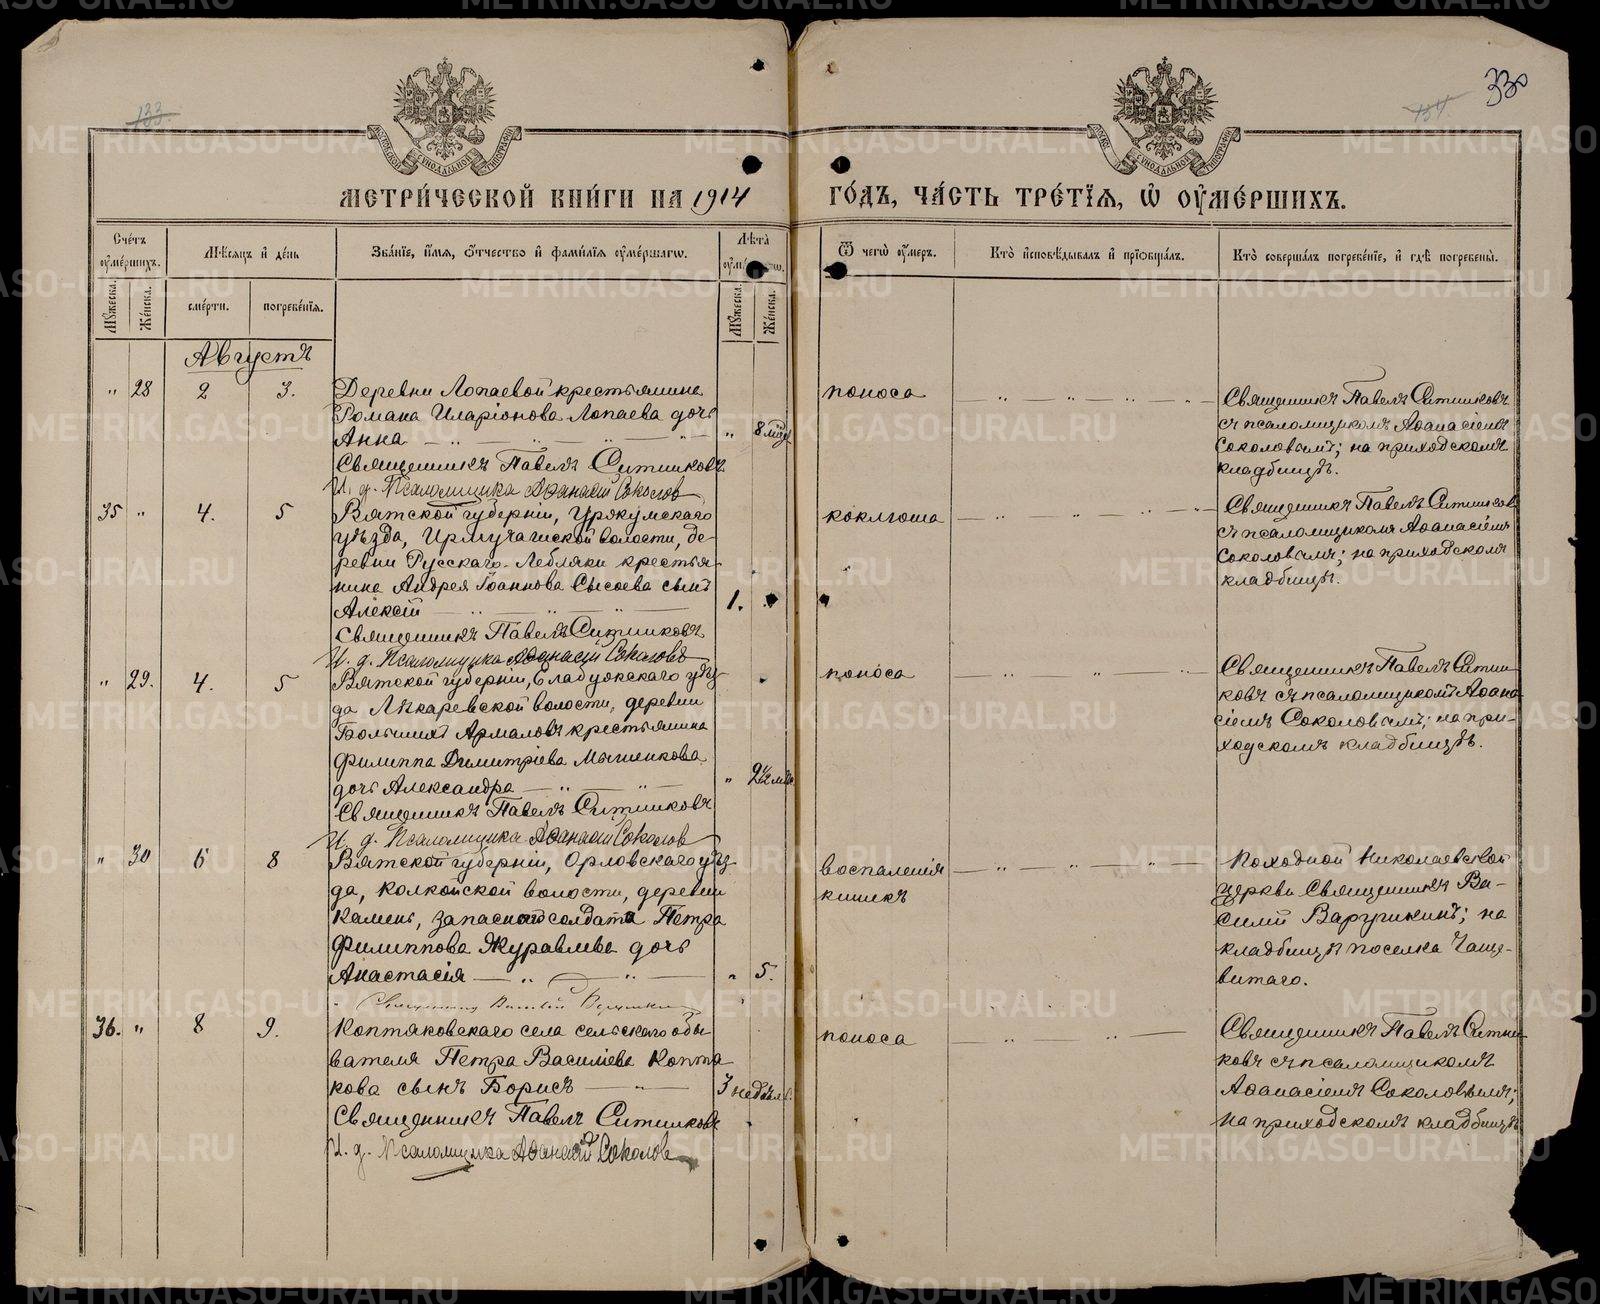 133.
134.
330
МЕТРИ́ЧЕСКОЙ КНИ́ГИ НА 1914 ГО́ДЪ, ЧА́СТЬ ТРЕ́ТІѦ, Ѡ ОУМЕ́РШИХЪ.
Сче́тъ оуме́ршихъ.
Мѣ́сяцъ и҆ де́нь
Зва́нїе, и҆́мя, ѻ҆́тчество и҆ фами́лїя оуме́ршагѡ.
Лѣта̀ оуме́ршагѡ.
Ѿ чегѡ̀ оу҆́меръ.
Кто̀ и҆сповѣ́дывалъ и҆ прїѡбща́лъ.
Кто̀ соверша́лъ погребе́нїе, и҆ гдѣ̀ погребены̀.
Мꙋ́жеска.
Же́нска.
сме́рти.
погребе́нїя.
Мꙋ́жеска.
Же́нска.
Августъ
" 28 2 3.
Деревни Лопаевой крестьянина
Романа Иларіонова Лопаева дочь
Анна " 8 мѣс.
Священникъ Павелъ Ситниковъ
И. д. Псаломщика Аѳанасій Соколовъ
поноса
Священникъ Павелъ Ситниковъ
съ псаломщикомъ Аѳанасіемъ
Соколовымъ; на приходскомъ
кладбищѣ.
35 " 4. 5
Вятской губерніи, Уржумскаго
уѣзда, Ирмучашской волости, де-
ревни Русскаго-Лебляки крестья-
нина Андрея Іоаннова Сысоева сынъ
Алексій 1. "
Священникъ Павелъ Ситниковъ
И. д. Псаломщика Аѳанасій Соколовъ
коклюша
Священникъ Павелъ Ситников
съ псаломщикомъ Аѳанасіемъ
Соколовымъ; на приходскомъ
кладбищѣ.
" 29. 4. 5
Вятской губерніи, Елабужскаго уѣз-
да Лекаревской волости, деревни
Большихъ Армаловъ крестьянина
Филиппа Димитріева Мышенкова
дочь Александра " 2½ мѣс.
Священникъ Павелъ Ситниковъ
И. д. Псаломщика Аѳанасій Соколовъ
поноса
Священникъ Павелъ Ситни-
ковъ съ псаломщикомъ Аѳана-
сіемъ Соколовымъ; на при-
ходскомъ кладбищѣ.
" 30 6 8
Вятской губерніи, Орловскаго уѣз-
да, Колкойской волости, деревни
Камень, запаснаго солдата Петра
Филиппова Журавлева дочь
Анастасія " 5.
Священникъ Василій Варушкинъ
воспаленія
кишекъ
Походной Николаевской
церкви Священникъ Ва-
силій Варушкинъ; на
кладбищѣ поселка Чаще-
витаго.
36. " 8 9.
Коптяковскаго села сельскаго обы-
вателя Петра Василіева Коптя-
кова сынъ Борисъ 3 недѣли
Священникъ Павелъ Ситниковъ
И. д. Псаломщика Аѳанасій Соколовъ
поноса
Священникъ Павелъ Ситни-
ковъ съ псаломщикомъ
Аѳанасіемъ Соколовымъ;
на приходскомъ кладбищѣ
METRIKI.GASO-URAL.RU